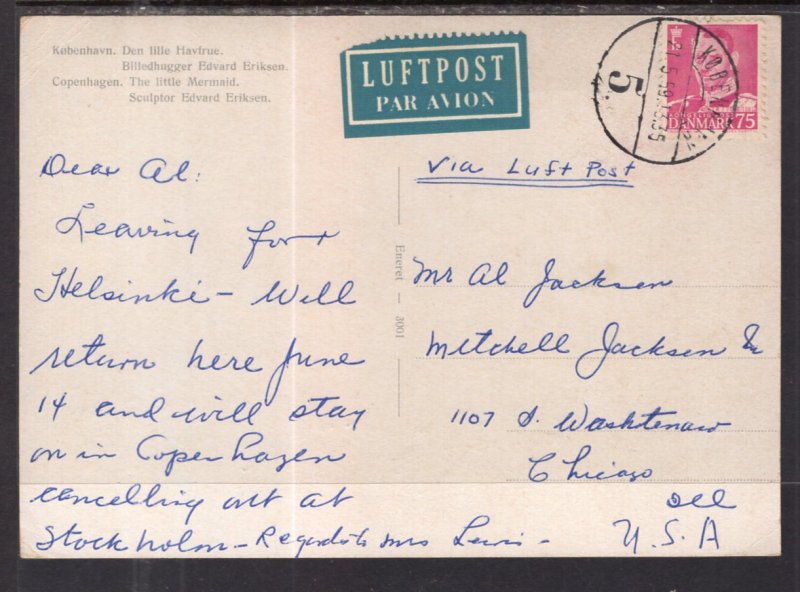 København. Den lille Havfrue.
Billedhugger Edvard Eriksen.
Copenhagen. The little Mermaid.
Sculptor Edvard Eriksen.
LUFTPOST
PAR AVION
5
DANMARK 75
Dear Al:
Leaving for
Helsinki - Will
return here June
14 and will stay
on in Copenhagen
cancelling out at
Stockholm - Regards to Mrs Lewis -
Eneret - 3001
Via Luft Post
Mr Al Jackson
Mitchell Jackson &
1107 S. Washtenaw
Chicago
Ill
U.S.A